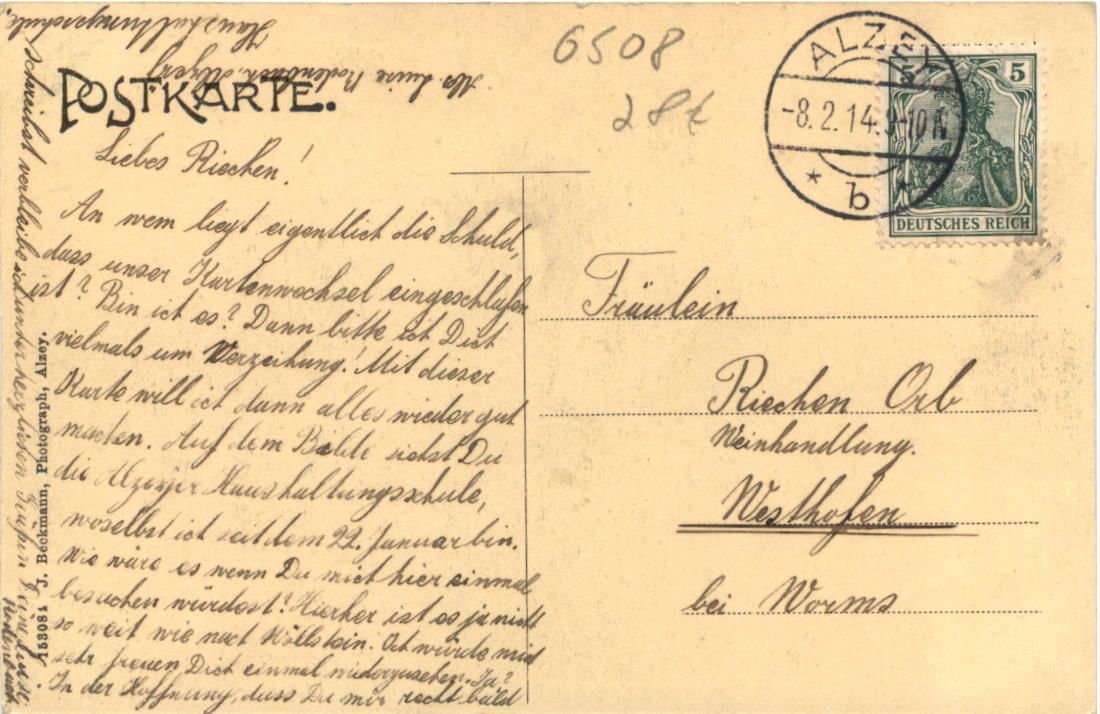 POSTKARTE.
6508
28t
ALZEY
-8.2.14. 9-10 N
* b *
5
5
DEUTSCHES REICH
Liebes Riechen!
An wem liegt eigentlich die Schuld,
dass unser Kartenwechsel eingeschlafen
ist? Bin ich es? Dann bitte ich Dich
vielmals um Verzeihung! Mit dieser
Karte will ich dann alles wieder gut
machen. Auf dem Bilde siehst Du
die Alzeyer Haushaltungsschule,
woselbst ich seit dem 22. Januar bin.
Wie wäre es wenn Du mich hier einmal
besuchen würdest? Hierher ist es ja nicht
so weit wie nach Wöllstein. Ich würde mich
sehr freuen Dich einmal wiederzusehen. Ja?
In der Hoffnung, dass Du mir recht bald
schreibst verbleibe ich unter herzlichen Grüßen Deine Luise
Rodenbach
Abs. Luise Rodenbach, Alzey
Haushaltungsschule.
153084 J. Beckmann, Photograph, Alzey.
Fräulein
Riechen Orb
Weinhandlung.
Westhofen
bei Worms